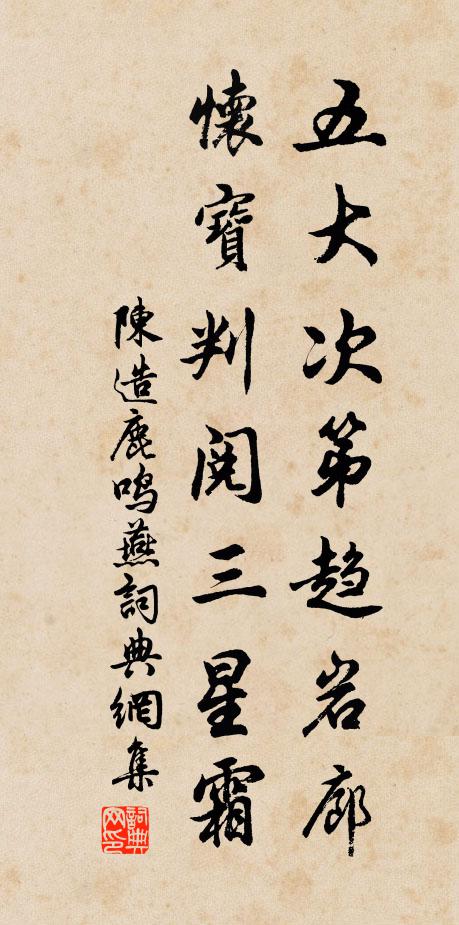 五大次第趋岩廊
懷寶判閱三星霜
陳造鹿鸣燕詞典網集
詞典网印